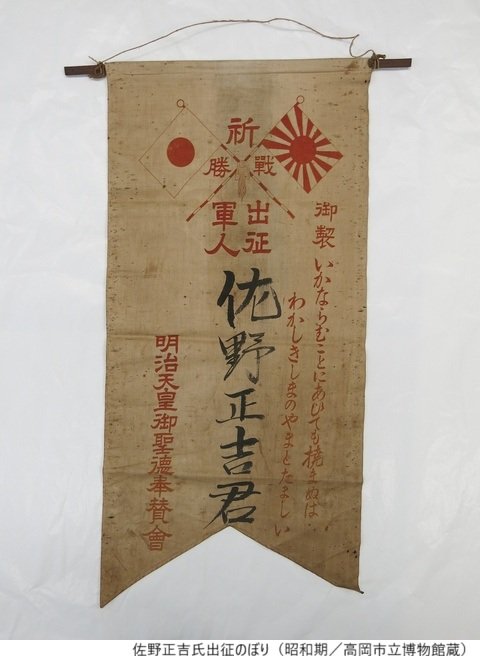 祈
戰勝
出征
軍人
御製
いかならむことにあひても撓まぬは
わかしきしまのやまとたましい
佐野正吉君
明治天皇御聖德奉賛會
佐野正吉氏出征のぼり（昭和期／高岡市立博物館蔵）